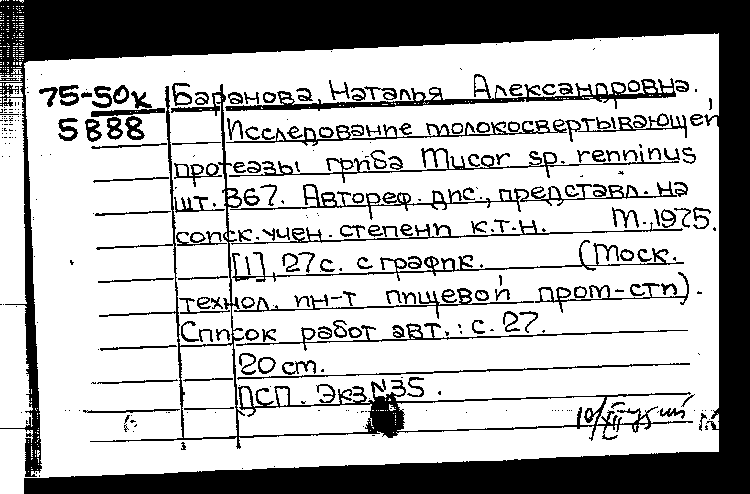 75-50к Баранова, Наталья Александровна.
5888 Исследование молокосвертывающей
протеазы гриба Mucor sp. renninus
шт. 367. Автореф. дис., представл. на
соиск. учен. степени к.т.н. М., 1975.
[1], 27 с. с график. (Моск.
технол. ин-т пищевой пром-сти).
Список работ авт.: с. 27.
20 cm.
ПСП. Экз. N 35.